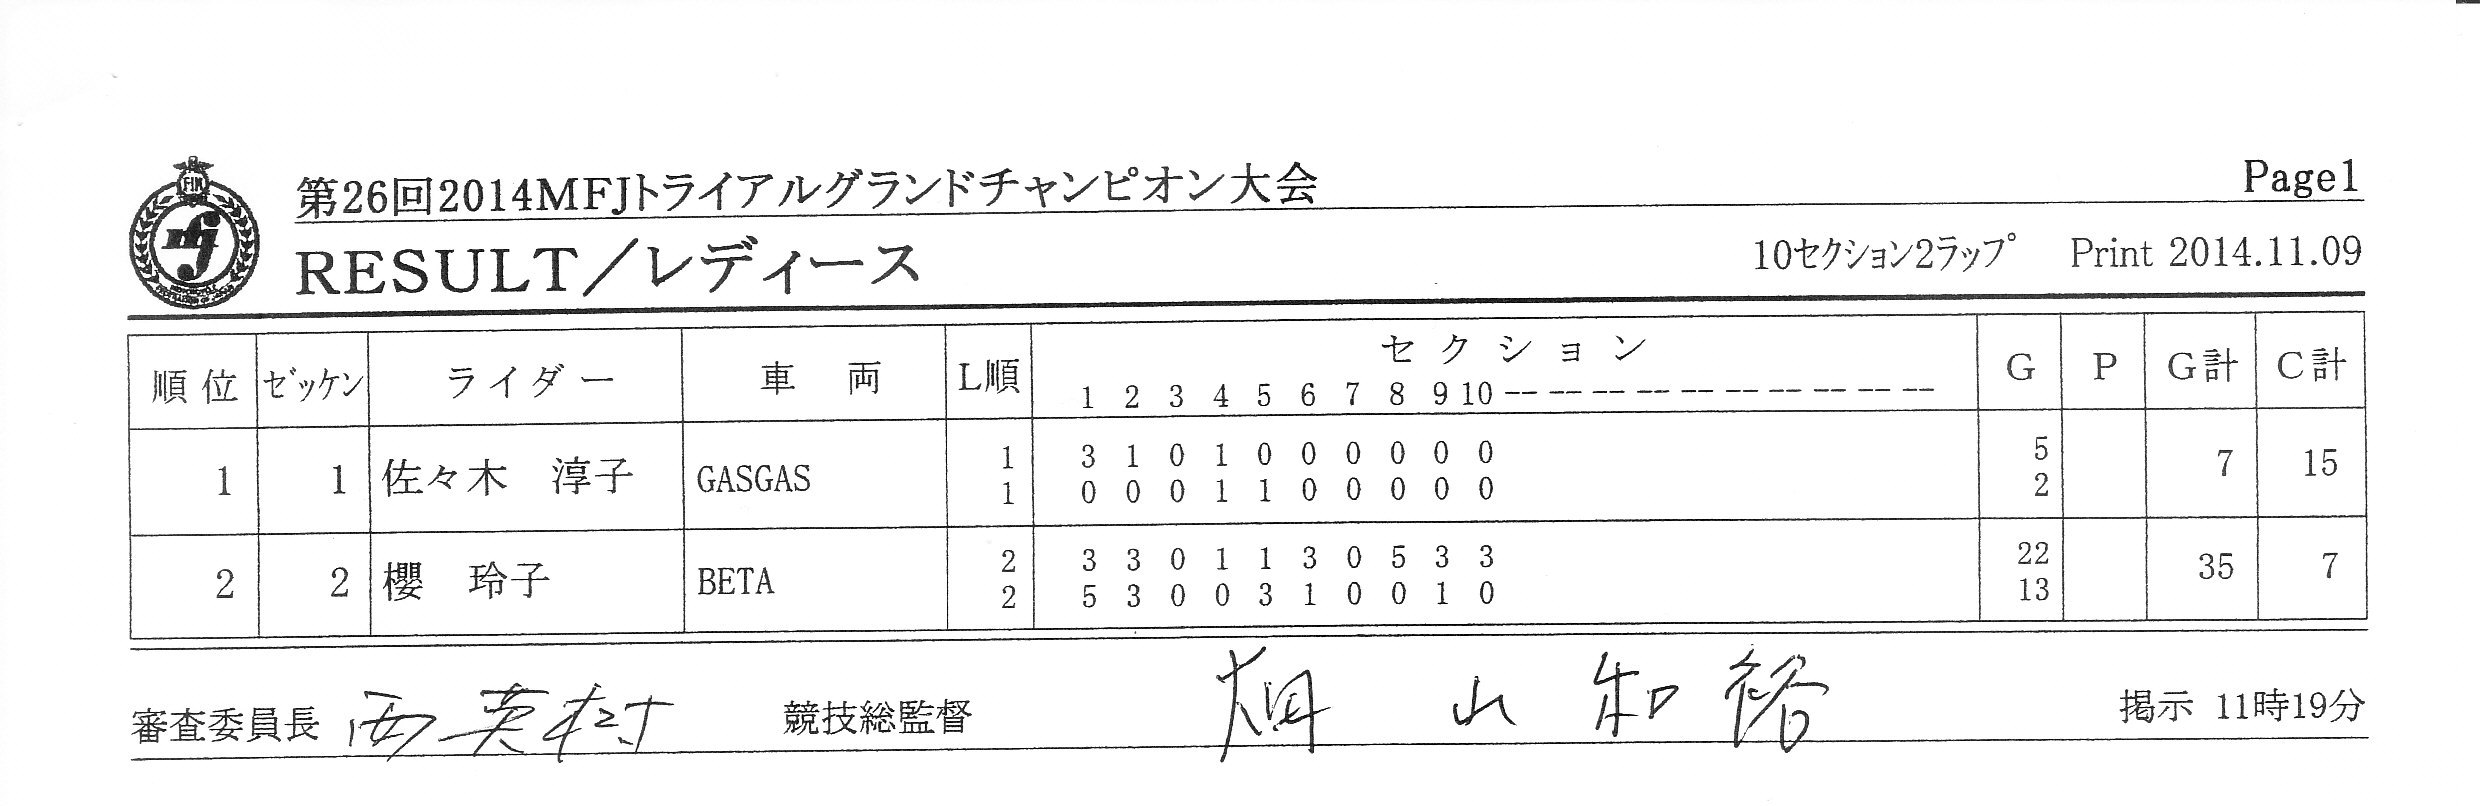 第26回2014MFJトライアルグランドチャンピオン大会 Page1
RESULT/レディース 10セクション2ラップ Print 2014.11.09
順位 ゼッケン ライダー 車両 L順 セクション G P G計 C計
1 2 3 4 5 6 7 8 9 10 -- -- -- -- -- -- -- -- -- --
1 1 佐々木 淳子 GASGAS 1 3 1 0 1 0 0 0 0 0 0 5 7 15
1 0 0 0 1 1 0 0 0 0 0 2
2 2 櫻 玲子 BETA 2 3 3 0 1 1 3 0 5 3 3 22 35 7
2 5 3 0 0 3 1 0 0 1 0 13
審査委員長 西英樹 競技総監督 畑山和裕 掲示 11時19分